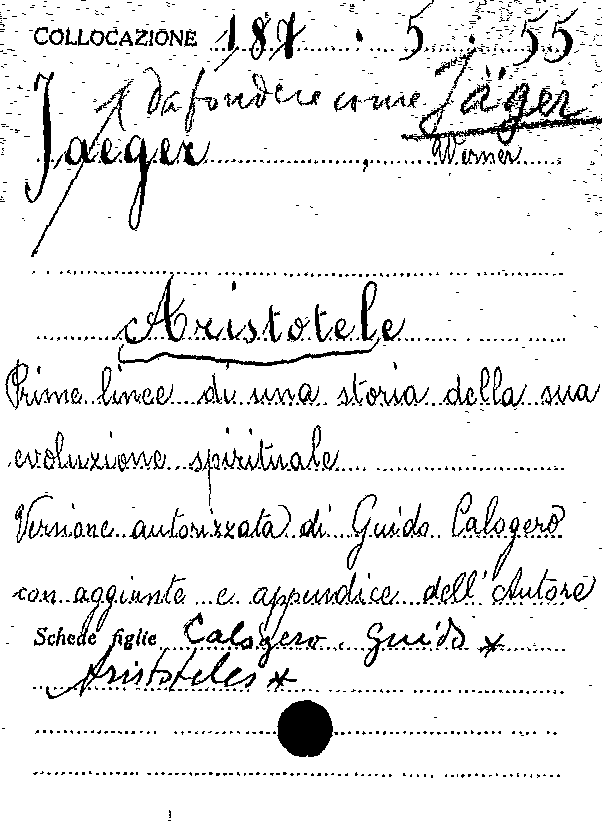 COLLOCAZIONE 187 . 5 . 55
da fondere come Jäger
Jaeger, Werner
Aristotele
Prime linee di una storia della sua
evoluzione spirituale
Versione autorizzata di Guido Calogero
con aggiunte e appendice dell'Autore
Schede figlie Calogero, Guido *
Aristoteles *